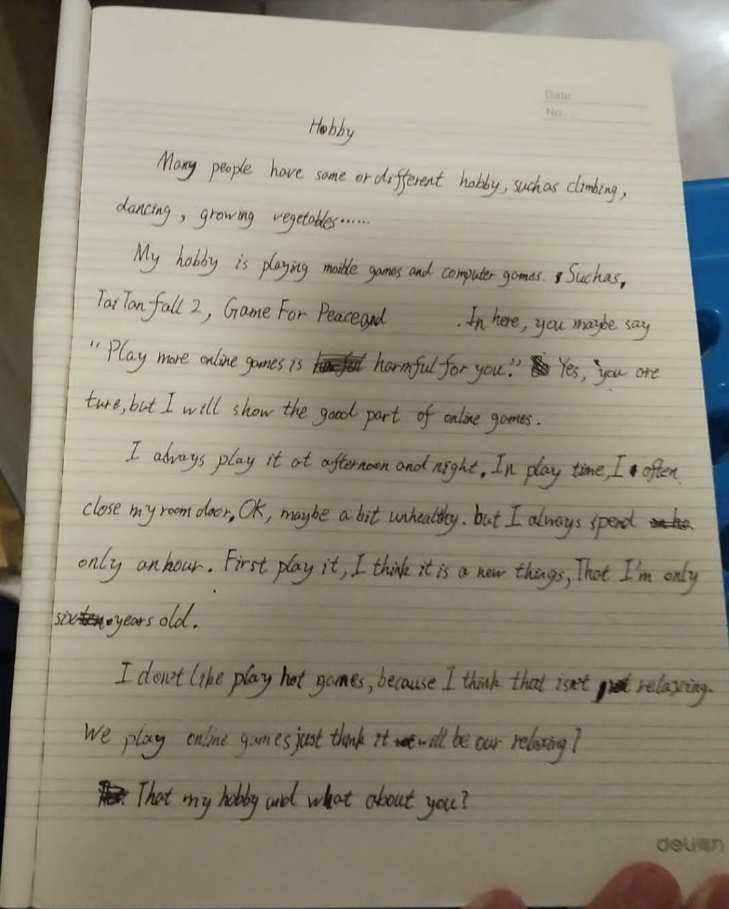 Date
No.
Hobby
Many people have same or different hobby, such as climbing,
dancing, growing vegetables......
My hobby is playing moible games and computer games. Suchas,
TaiTanfall 2, Game For Peace and . In here, you maybe say
"Play more online games is harmful for you." Yes, you are
ture, but I will show the good part of online games.
I always play it at afternoon and night. In play time, I often
close my room door, OK, maybe a bit unhealthy. but I always spend
only an hour. First play it, I think it is a new things, That I'm only
six years old.
I don't like play hot games, because I think that isn't relaxing.
We play online games just think it will be our relaxing!
That my hobby and what about you?
deli